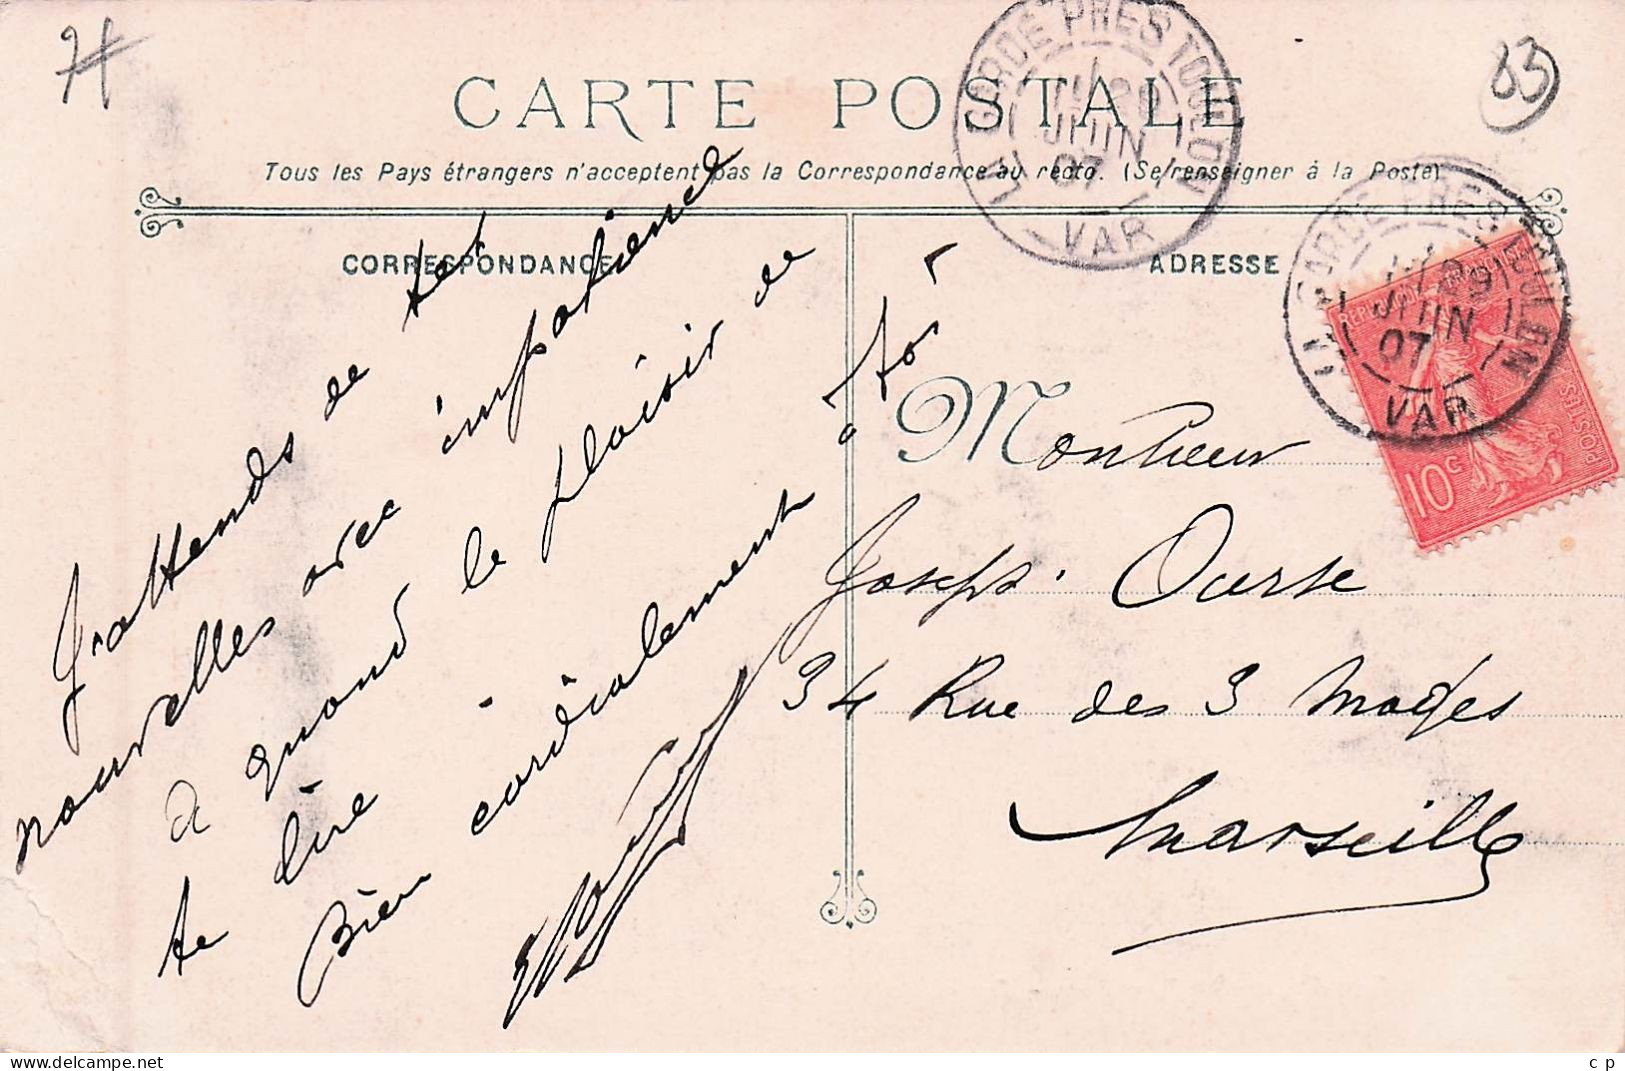 7
83
CARTE POSTALE
Tous les Pays étrangers n'acceptent pas la Correspondance au recto. (Se renseigner à la Poste)
CORRESPONDANCE
ADRESSE
LA GARDE PRES TOULON
29
JUIN
07
VAR
LA GARDE PRES TOULON
29
JUIN
07
VAR
REPUBLIQUE FRANÇAISE
POSTES
10c
J'attends de tes
nouvelles avec impatience
à quand le plaisir de
te lire -
Bien cordialement à toi
Monsieur
Joseph
34 Rue des 3 Mages
Marseille
delcampe.net
c p